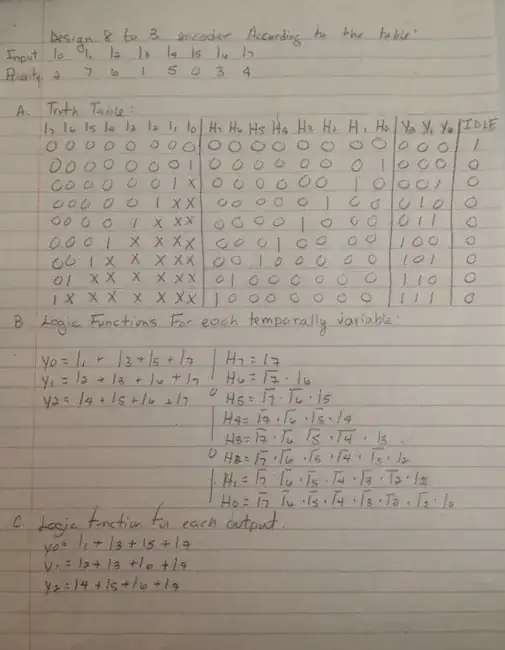 Design 8 to 3 encoder According to the table:
Input I0 I1 I2 I3 I4 I5 I6 I7
Priority 2 7 6 1 5 0 3 4
A. Truth Table:
I7 I6 I5 I4 I3 I2 I1 I0 H7 H6 H5 H4 H3 H2 H1 H0 Y2 Y1 Y0 IDLE
0 0 0 0 0 0 0 0 0 0 0 0 0 0 0 0 0 0 0 1
0 0 0 0 0 0 0 1 0 0 0 0 0 0 0 1 0 0 0 0
0 0 0 0 0 0 1 X 0 0 0 0 0 0 1 0 0 0 1 0
0 0 0 0 0 1 X X 0 0 0 0 0 1 0 0 0 1 0 0
0 0 0 0 1 X X X 0 0 0 0 1 0 0 0 0 1 1 0
0 0 0 1 X X X X 0 0 0 1 0 0 0 0 1 0 0 0
0 0 1 X X X X X 0 0 1 0 0 0 0 0 1 0 1 0
0 1 X X X X X X 0 1 0 0 0 0 0 0 1 1 0 0
1 X X X X X X X 1 0 0 0 0 0 0 0 1 1 1 0
B Logic Functions For each temporally variable:
Y0 = I1 + I3 + I5 + I7 H7 = I7
Y1 = I2 + I3 + I6 + I7 H6 = I̅7 · I6
Y2 = I4 + I5 + I6 + I7 H5 = I̅7 · I̅6 · I5
H4 = I̅7 · I̅6 · I̅5 · I4
H3 = I̅7 · I̅6 I̅5 · I̅4 · I3
H2 = I̅7 · I̅6 · I̅5 · I̅4 · I̅3 · I2
H1 = I̅7 I̅6 · I̅5 · I̅4 · I̅3 · I̅2 ·
H0 = I̅7 I̅6 · I̅5 · I̅4 · I̅3 · I̅2 · I̅1 · I0
C Logic function for each output.
Y0 = I1 + I3 + I5 + I7
Y1 = I2 + I3 + I6 + I7
Y2 = I4 + I5 + I6 + I7